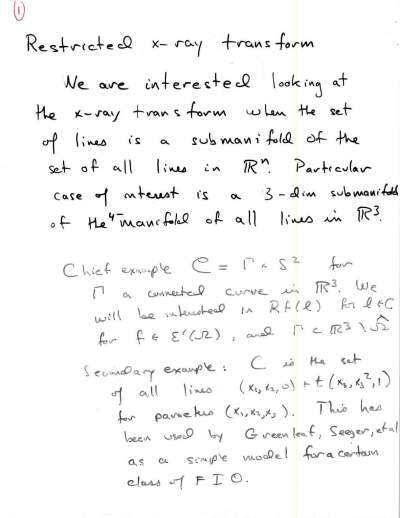 1
Restricted x-ray transform
We are interested looking at
the x-ray transform when the set
of lines is a submanifold of the
set of all lines in ℝⁿ. Particular
case of interest is a 3-dim submanifold
of the 4-manifold of all lines in ℝ³.
Chief example C = Γ × S² for
Γ a connected curve in ℝ³. We
will be interested in Rf(ℓ) for ℓ∈C
for f ∈ ℰ'(Ω), and Γ ⊂ ℝ³ \ Ω̂
Secondary example: C is the set
of all lines (x₁, x₂, 0) + t(x₃, x₃², 1)
for parameters (x₁, x₂, x₃). This has
been used by Greenleaf, Seeger, et al
as a simple model for a certain
class of FIO.